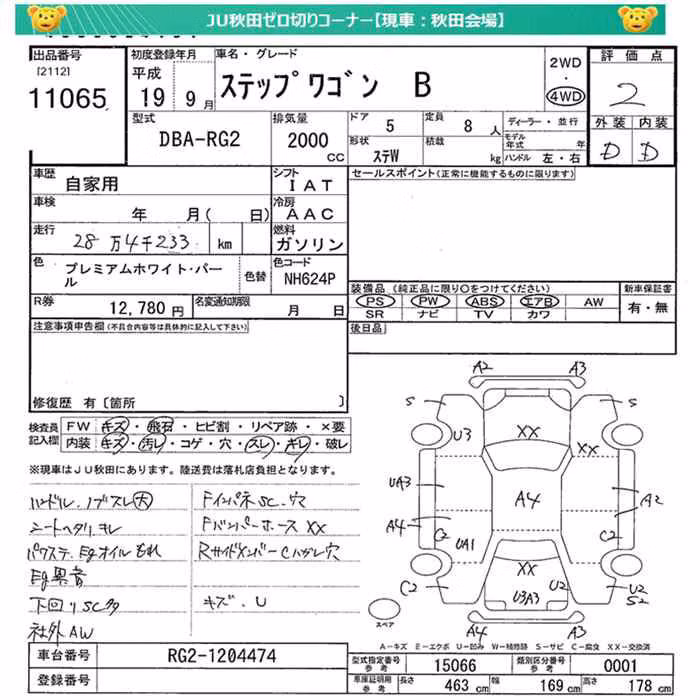 JU秋田ゼロ切りコーナー【現車：秋田会場】
出品番号 初度登録年月 車名・グレード 評価点
[2112] 平成 ステップワゴン B 2WD・4WD 2
11065 19年9月 外装 内装
型式 排気量 ドア 5 定員 8人 ディーラー・並行 D D
DBA-RG2 2000cc 形状 ステW 積載 kg モデル年式 年 ハンドル 左・右
車歴 自家用 シフト IAT セールスポイント(正常に機能するものに限ります)
車検 年 月( 日) 冷房 AAC
走行 28万4千233 km 燃料 ガソリン
色 プレミアムホワイト・パール 色替 色コード NH624P
装備品 (純正品に限り○をつけてください) 新車保証書
PS PW ABS エアB AW 有・無
SR ナビ TV カワ
R券 12,780円 名変通知期限 月 日
注意事項申告欄(不具合内容等は具体的に記入して下さい) 後日品
修復歴 有〔箇所 〕
検査員記入欄 FW キズ・飛石・ヒビ割・リペア跡・×要
内装 キズ・汚レ・コゲ・穴・スレ・キレ・破レ
※現車はJU秋田にあります。陸送費は落札店負担となります。
ハンドル、ノブスレ(大) Fインパネ SC、穴
シートヘタリ、キレ Fバンパーホース XX
パワステ、Egオイルもれ RサイドメンバーCハガレ穴
Eg異音
下回りSC多 キズ、U
社外AW
A2 A3
S S
U3 XX XX
UA3 A4 A2
A4 C2 C2
UA1
C2 XX U2 U2
U3A3 S2
スペア
A4 A3
A-キズ E-エクボ U-凹み W-補修跡 S-サビ C-腐食 XX-交換済
車台番号 RG2-1204474 型式指定番号 参考 15066 類別区分番号 参考 0001
登録番号 車庫証明用 参考 長さ 463cm 幅 169cm 高さ 178cm